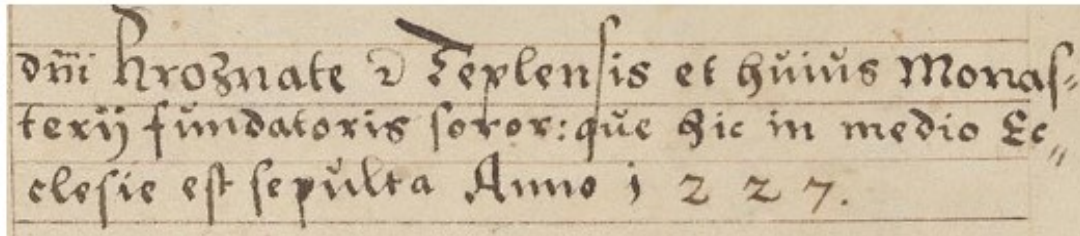 dn̄i Hroznate ⁊ Teplensis et huius Monas-
terij fundatoris soror: que hic in medio Ec„
clesie est sepulta Anno 1 2 2 7.